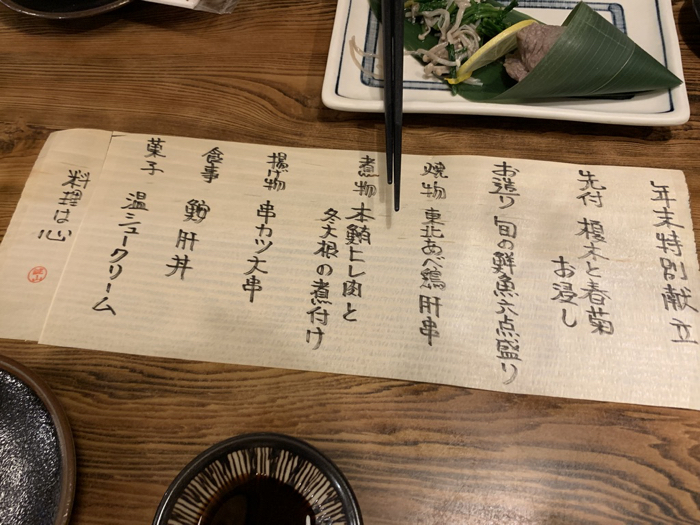 年末特別献立
先付 榎木と春菊
お浸し
お造り 旬の鮮魚六点盛り
焼物 東北あべ鶏 肝串
煮物 本鮪ヒレ肉と
冬大根の煮付け
揚げ物 串カツ大串
食事 鮟肝丼
菓子 温シュークリーム
料理は心